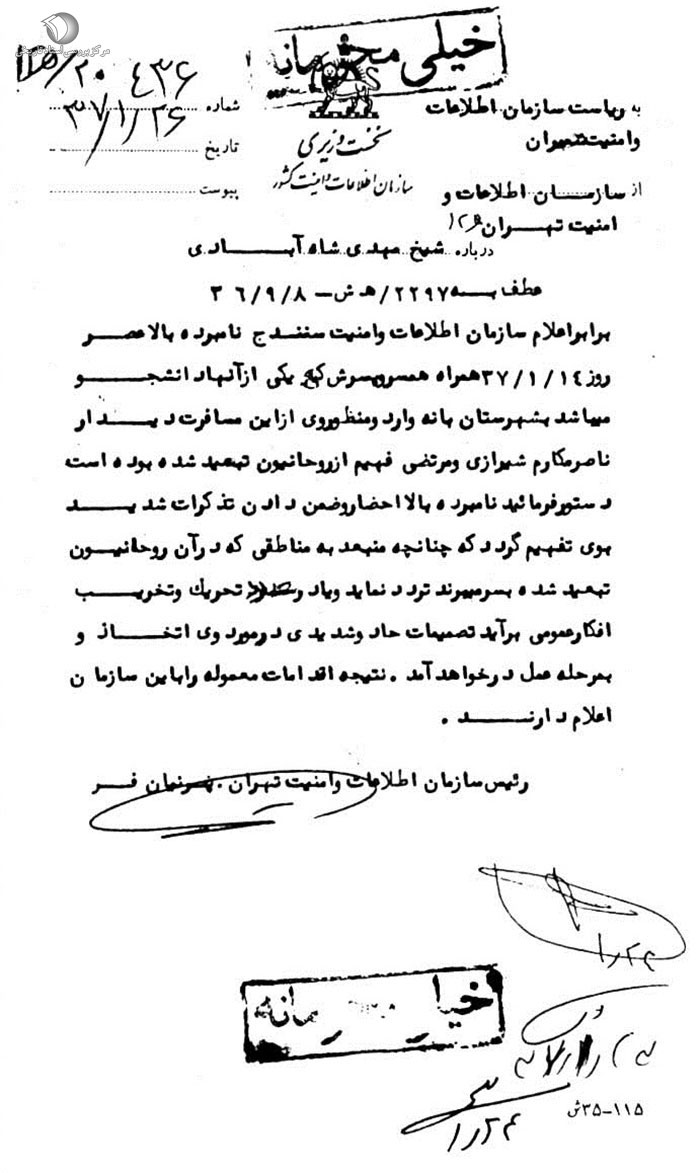 مرکز بررسی اسناد تاریخی
خیلی محرمانه
به ریاست سازمان اطلاعات
وامنیت تهران
نخست وزیری
سازمان اطلاعات و امنیت کشور
شماره ۴۳۶
تاریخ ۳۷/۱/۲۶
پیوست
از سازمان اطلاعات و
امنیت تهران
درباره شیخ مهدی شاه آبادی
عطف به ۲۲۹۷/ﻫ ش - ۳۶/۹/۸
برابر اعلام سازمان اطلاعات وامنیت سنندج نامبرده بالا عصر
روز ۳۷/۱/۱۴ همراه همسر وپسرش که یکی از آنها دانشجو
میباشد بشهرستان بانه وارد ومنظور وی از این مسافرت دیدار
ناصرمکارم شیرازی ومرتضی فهیم از روحانیون تبعید شده بوده است
دستور فرمائید نامبرده بالا احضار وضمن دادن تذکرات شدید
بوی تفهیم گردد که چنانچه منبعد به مناطقی که در آن روحانیون
تبعید شده بسر میبرند تردد نماید ویا در صدد تحریک وتخریب
افکار عمومی برآید تصمیمات حاد وشدیدی در مورد وی اتخاذ و
بمرحله عمل در خواهد آمد . نتیجه اقدامات معموله را باین سازمان
اعلام دارند .
رئیس سازمان اطلاعات وامنیت تهران . پرنیان فر
۱/۲۴
خیلی محرمانه
۱/۲۴
۳۵-۱۱۵ش